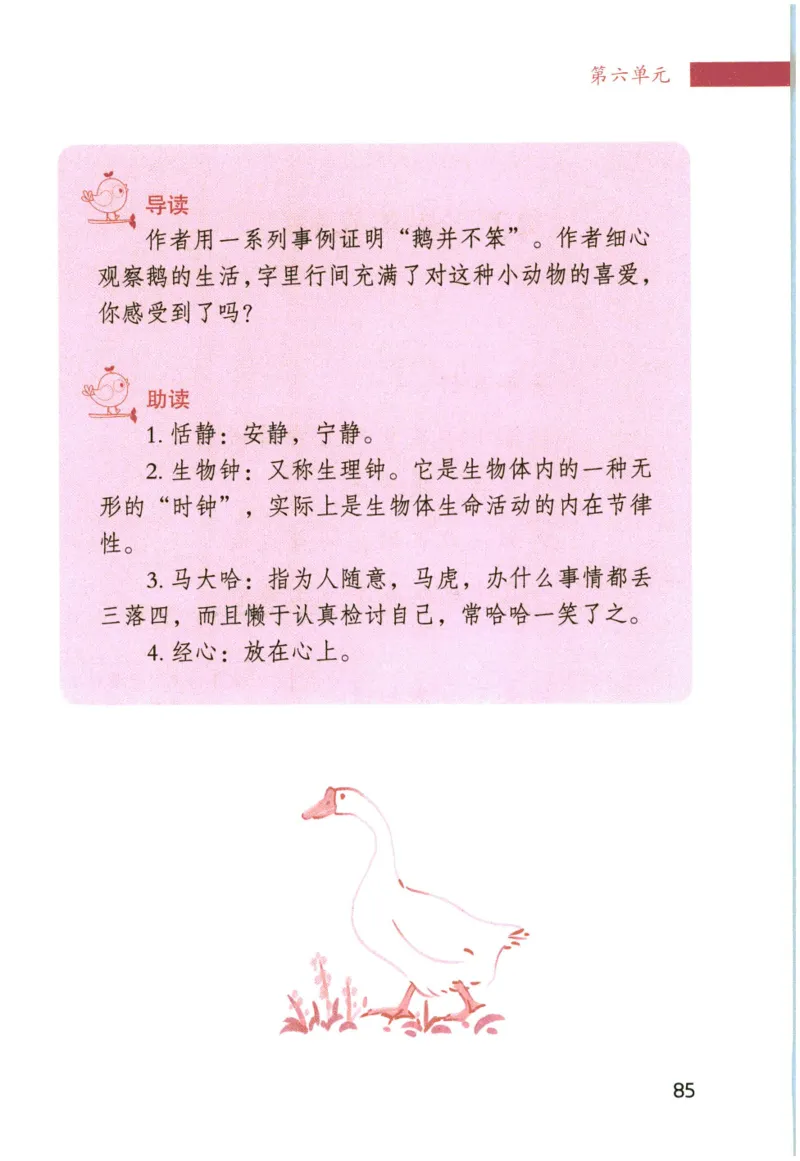 第六单元
导读
作者用一系列事例证明“鹅并不笨”。作者细心
观察鹅的生活，字里行间充满了对这种小动物的喜爱，
你感受到了吗？
助读
1. 恬静：安静，宁静。
2. 生物钟：又称生理钟。它是生物体内的一种无
形的“时钟”，实际上是生物体生命活动的内在节律
性。
3. 马大哈：指为人随意，马虎，办什么事情都丢
三落四，而且懒于认真检讨自己，常哈哈一笑了之。
4. 经心：放在心上。
85